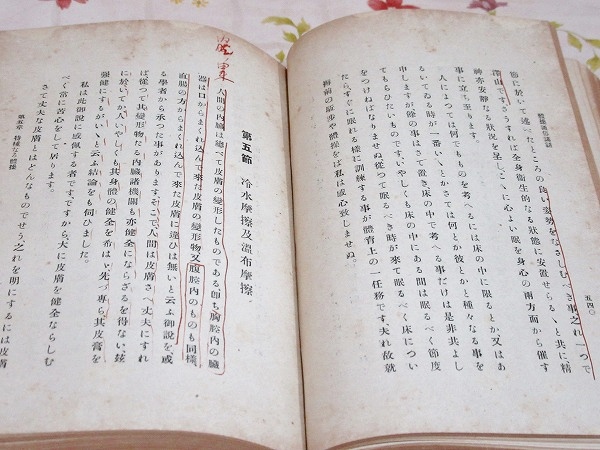 五四〇
節に於いて述べたところの良い姿勢をなさしむべき事之れ一つで
澤山ですさうすれば全身衞生的なる狀態に安置せらるゝと共に精
神亦安靜なる狀況を呈しこゝに心よい眠を身心の兩方面から催す
事に立ち至ります。
人によつては何でもものを考へるには床の中に限るとか又はあ
るいてゐる時が一番いゝとかさては何とか彼とか種々なる事を
申しますが餘の事はさて置き床の中で考へる事だけは是非共よし
てもらひたいものですいやしくも床の中にある間は眠るべく節度
をつけねばなりませぬ從つて眠るべき時が來て眠るべく床につい
たらすぐに眠れる樣に訓練する事が體育上の一任務です夫れ故就
體操は私は感心致しませぬ。
第五節 冷水摩擦及溫布摩擦
人間の內臟は總べて皮膚の變形したものである卽ち胸腔內の臟
器は口からまくれ込んで來た皮膚の變形物又腹腔內のものも同樣
直腸の方からまくれ込んで來た皮膚に違ひは無いと云ふ御說を、或
る學者から承つた事がありますそこで人間は皮膚さへ丈夫にすれ
ば從つて其變形物たる內臟諸機關も亦健全にならざるを得ない茲
に於いてか人いやしくも其身體の健全を希はゞ先づ專ら其皮膚を
强健にするがいゝと云ふ結論をも伺ひました。
私は此御說に感服する者です、ですから、大に皮膚を健全ならしむ
べく常に苦心をして居ります。
さて丈夫な皮膚とはどんなものでせう、之れを明にするには皮膚
第五章 特種なる體操